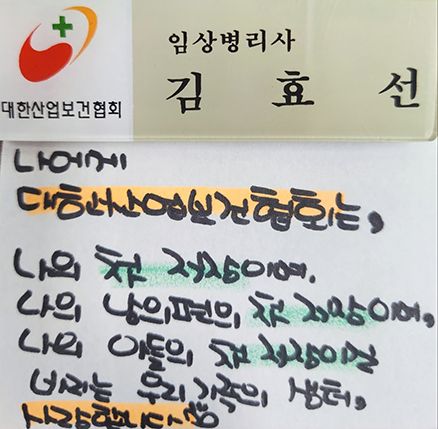 대한산업보건협회
임상병리사
김 효 선
나에게
대한산업보건협회는,
나의 첫 직장이며,
나의 남의편의 첫 직장이며,
나의 아들의 첫 직장이길
바라는 우리 가족의 쉼터,
사랑합니다